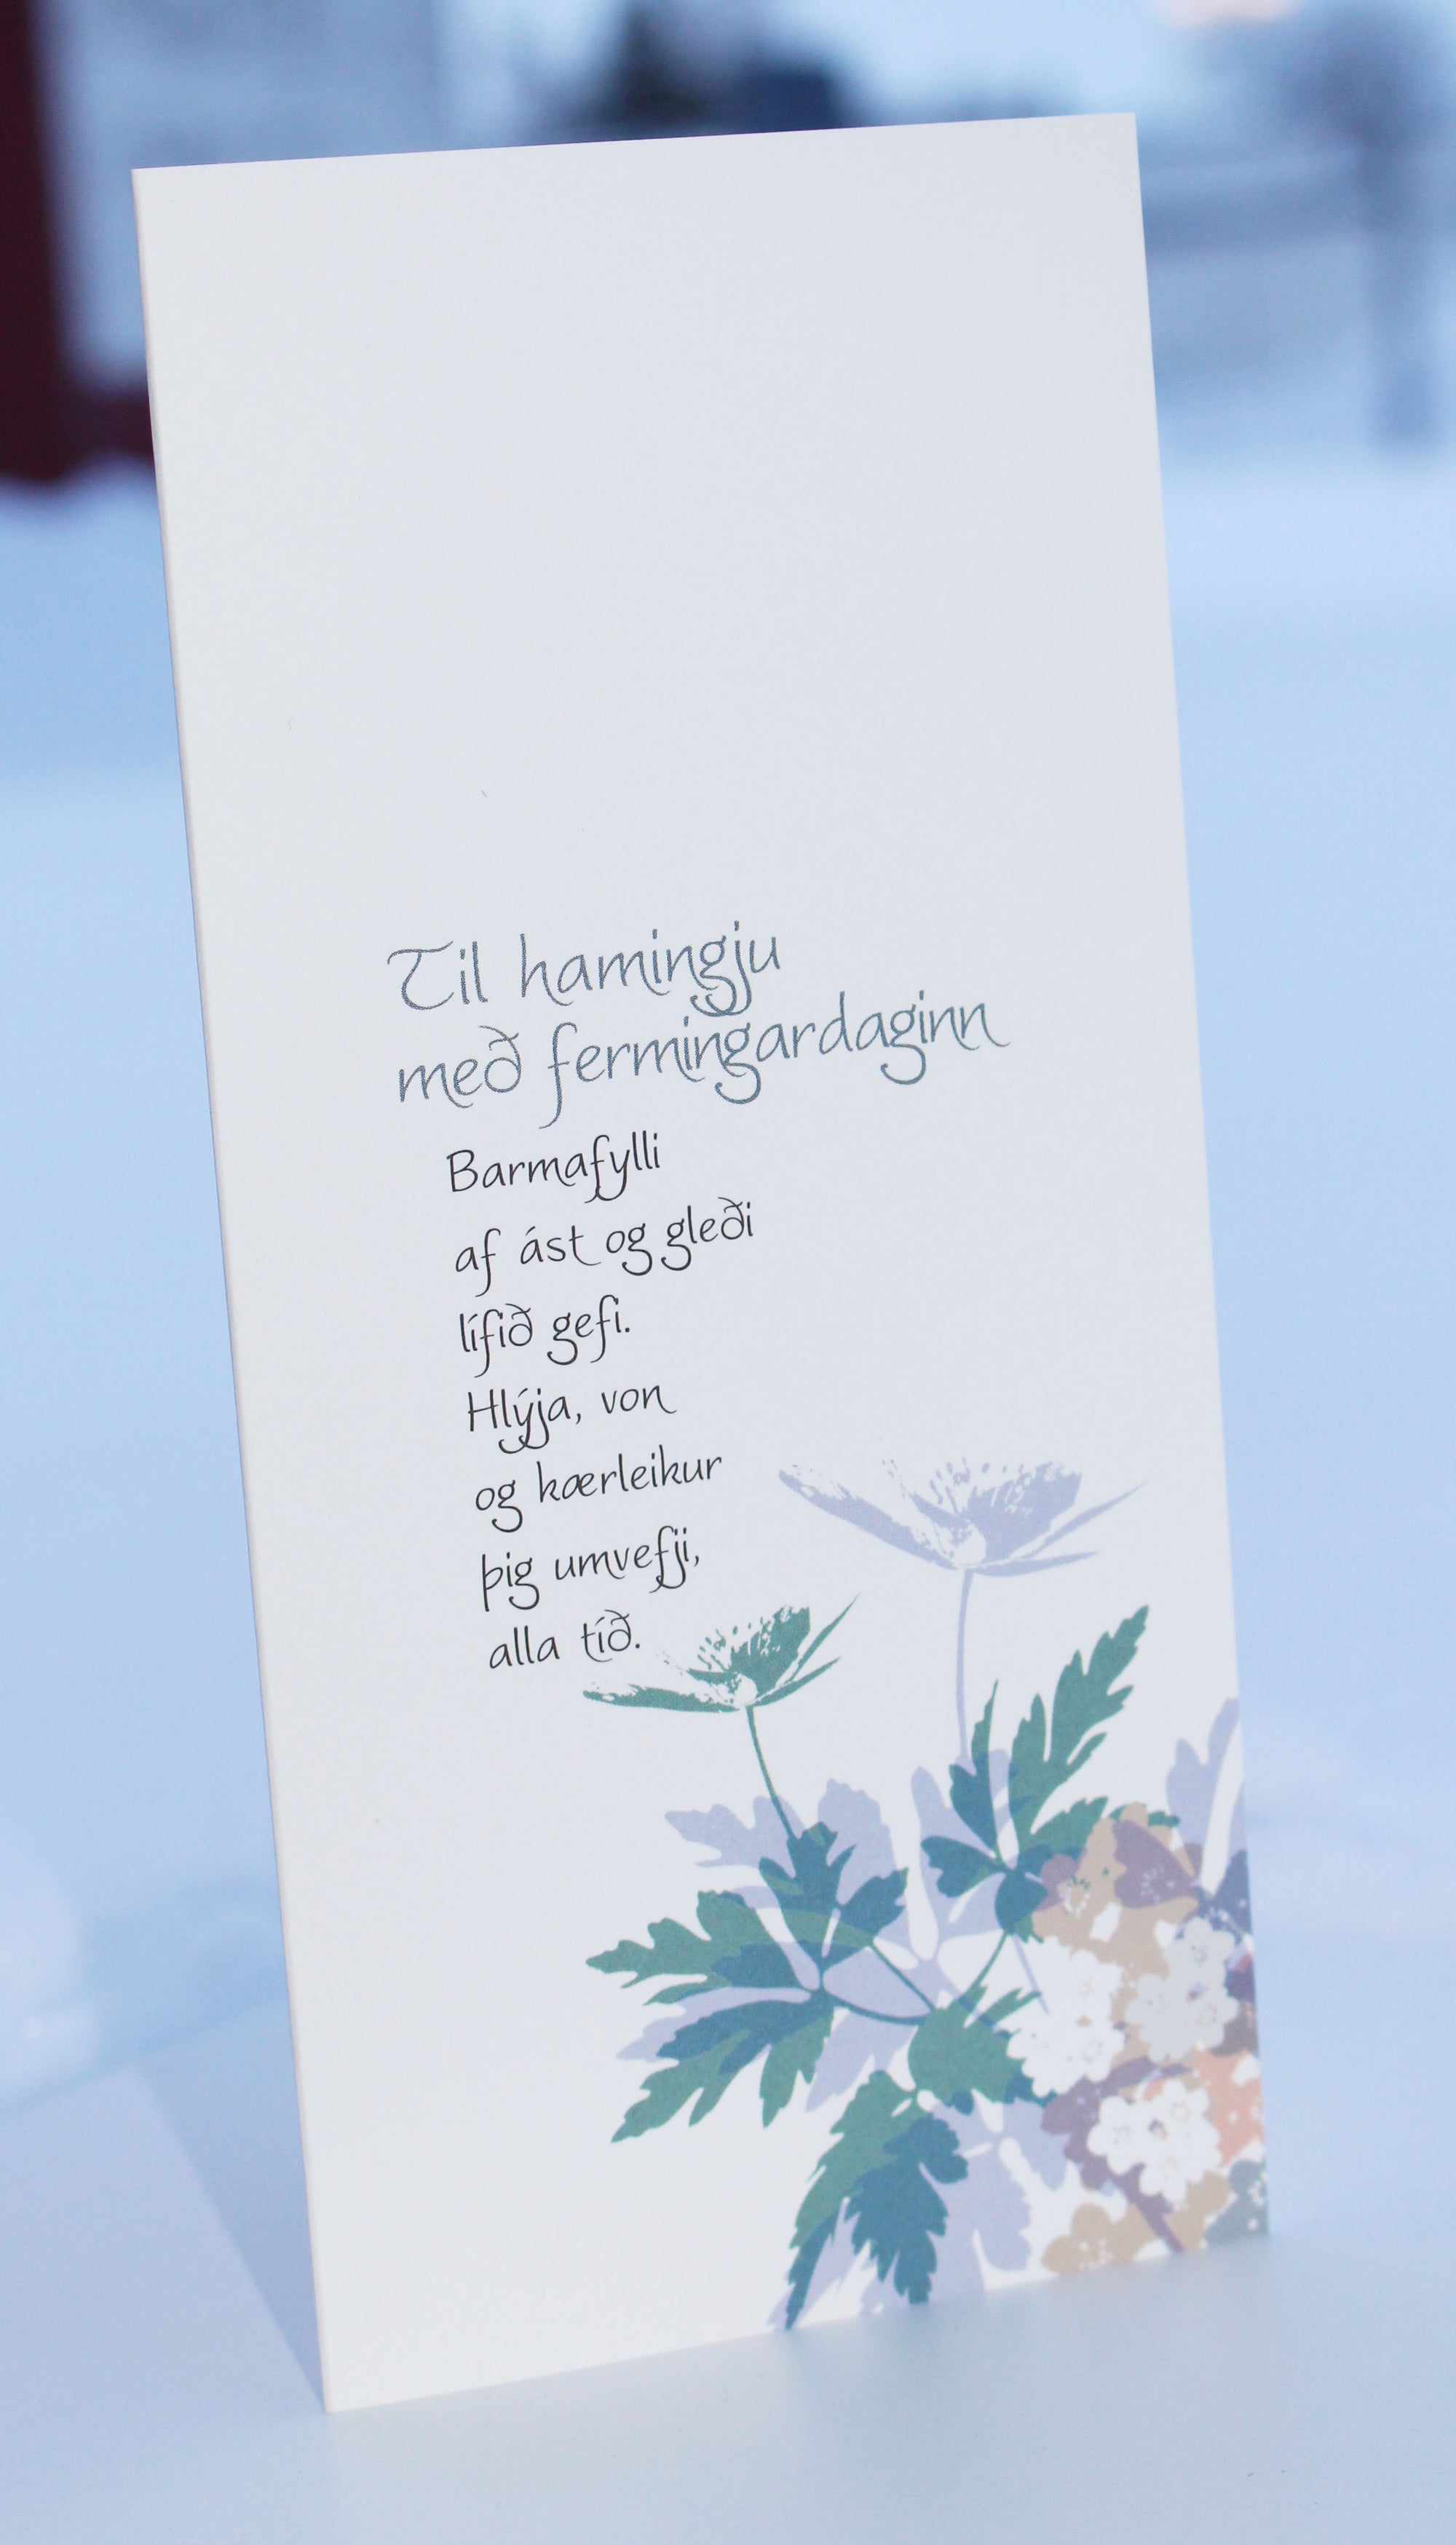 Til hamingju
með fermingardaginn
Barmafylli
af ást og gleði
lífið gefi.
Hlýja, von
og kærleikur
þig umvefji,
alla tíð.